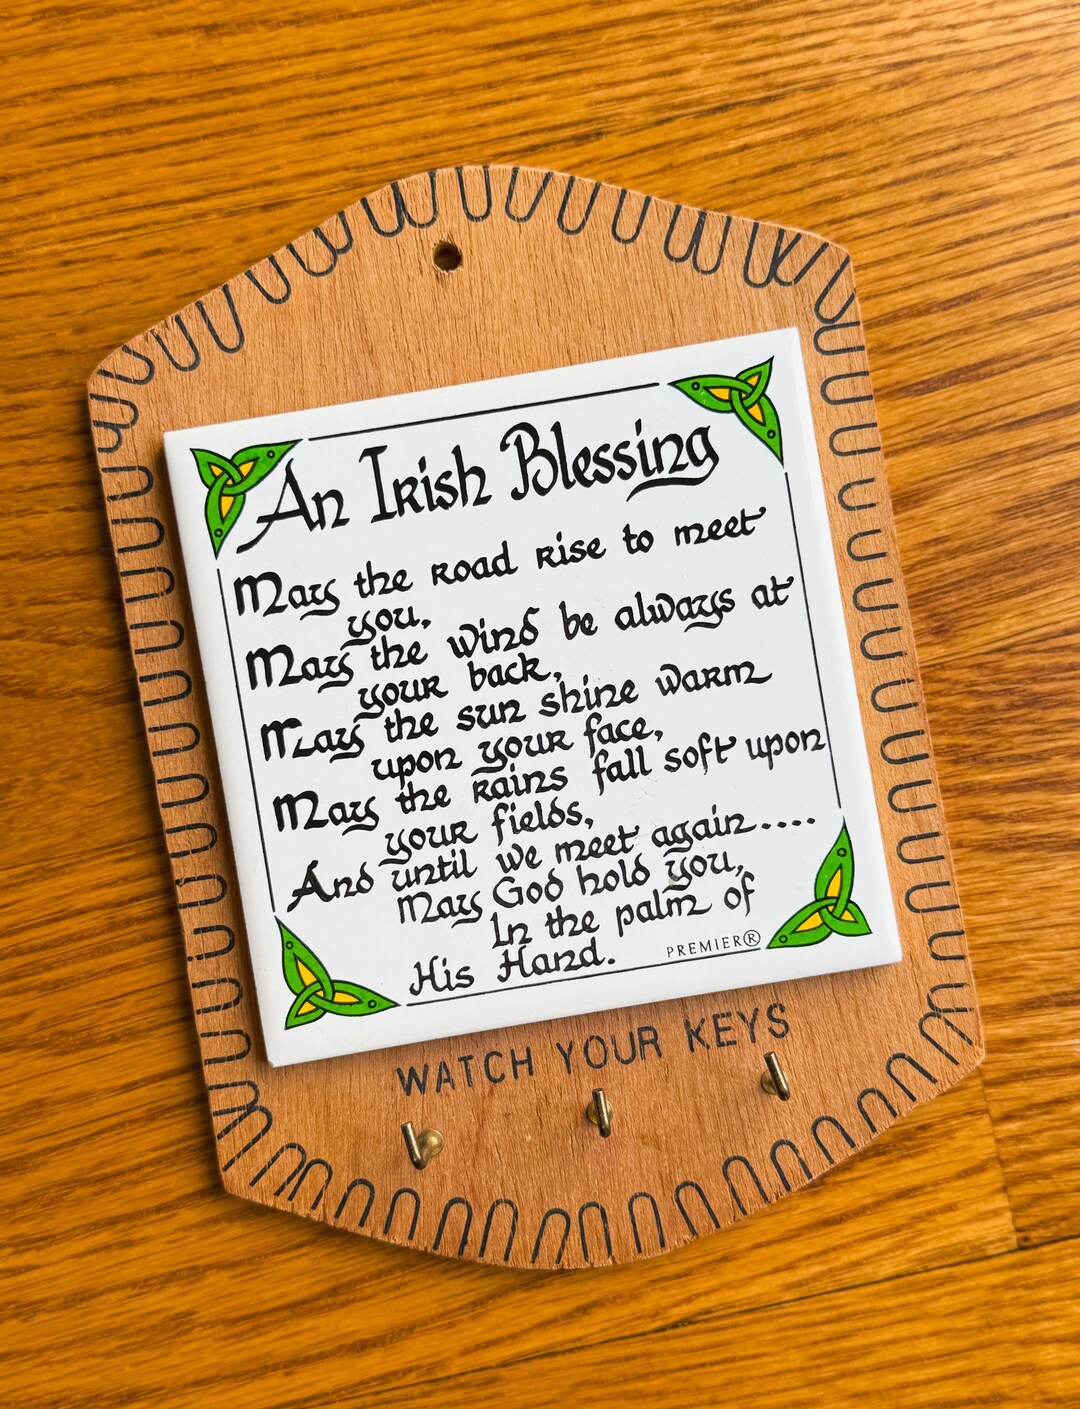 An Irish Blessing
May the road rise to meet
you,
May the wind be always at
your back,
May the sun shine warm
upon your face,
May the rains fall soft upon
your fields,
And until we meet again....
May God hold you,
In the palm of
His Hand.
PREMIER®
WATCH YOUR KEYS